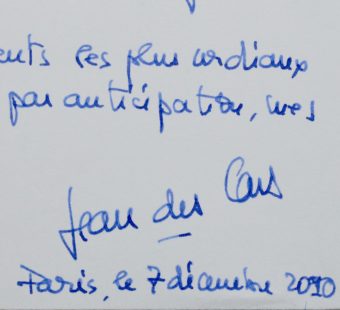 ents les plus cordiaux
par anticipation, mes
Jean des Cars
Paris, le 7 décembre 2010